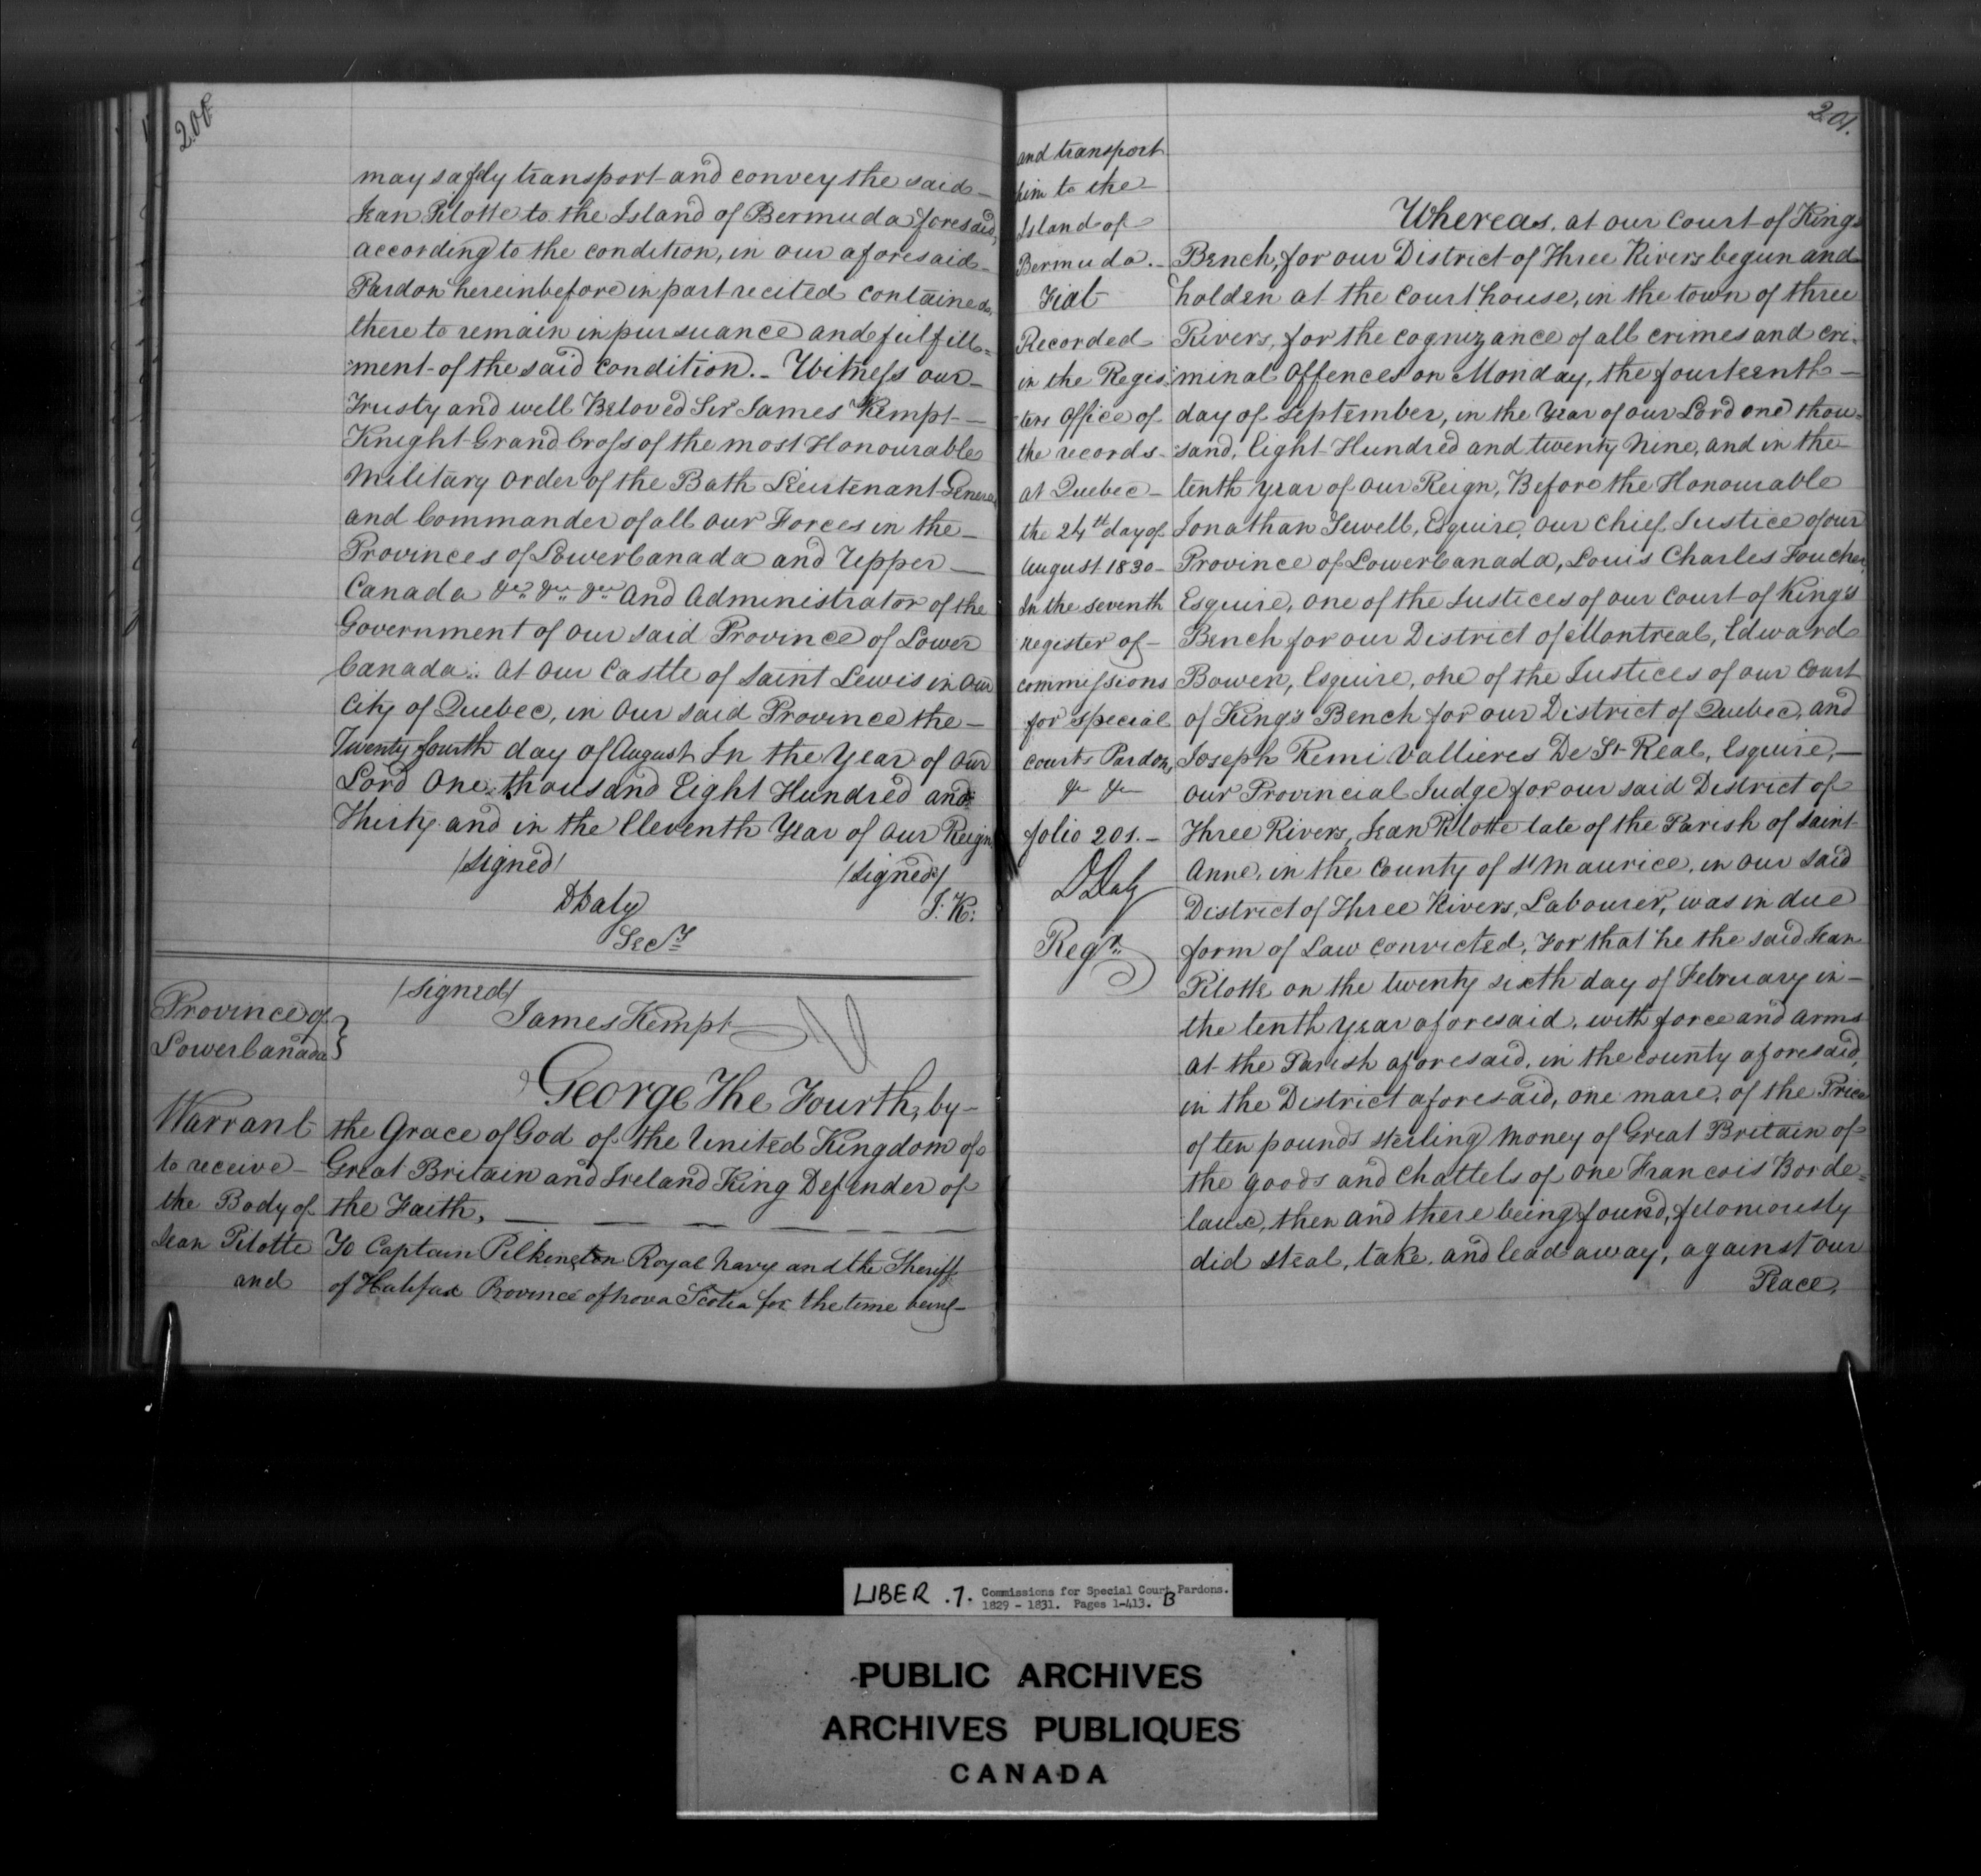 200
may safely transport and convey the said
Jean Pilotte to the Island of Bermuda foresaid,
according to the condition, in our aforesaid
Pardon hereinbefore in part recited contained,
there to remain in pursuance and fulfill=
ment of the said condition. Witness our
Trusty and well Beloved Sir James Kempt
Knight Grand Cross of the most Honourable
Military Order of the Bath Lieutenant General
and Commander of all our Forces in the
Provinces of Lower Canada and Upper
Canada &c. &c. &c. And Administrator of the
Government of our said Province of Lower
Canada: At our Castle of Saint Lewis in our
City of Quebec, in our said Province the
Twenty fourth day of August In the Year of our
Lord One thousand Eight Hundred and
Thirty and in the Eleventh Year of our Reign
/Signed/ /Signed/
DDaly J. K:
Secy
/Signed/
James Kempt
Province of
Lower Canada }
George The Fourth, by
the Grace of God of the United Kingdom of
Great Britain and Ireland King Defender of
the Faith,
To Captain Pilkington Royal Navy and the Sheriff
of Halifax Province of nova Scotia for the time being
Warrant
to receive
the Body of
Jean Pilotte
and
201.
and transport
him to the
Island of
Bermuda.
Fiat
Recorded
in the Regis
ters Office of
the records
at Quebec
the 24th day of
August 1830
In the seventh
register of
commissions
for special
courts Pardons
&c &c
folio 201.
DDaly
Regr.
Whereas, at our Court of Kings
Bench, for our District of Three Rivers begun and
holden at the Court house, in the town of three
Rivers, for the cognizance of all crimes and cri=
minal offences on Monday, the fourteenth
day of September, in the Year of our Lord one thou=
sand, Eight Hundred and twenty Nine, and in the
tenth year of our Reign, Before the Honourable
Jonathan Sewell, Esquire, our Chief Justice of our
Province of Lower Canada, Louis Charles Foucher,
Esquire, one of the Justices of our Court of King's
Bench for our District of Montreal, Edward
Bowen, Esquire, one of the Justices of our Court
of King's Bench for our District of Quebec, and
Joseph Remi Vallieres De St Real, Esquire,
our Provincial Judge for our said District of
Three Rivers, Jean Pilotte late of the Parish of Saint
Anne, in the County of St Maurice, in our said
District of Three Rivers, Labourer, was in due
form of Law convicted, For that he the said Jean
Pilotte on the twenty sixth day of February in
the tenth year aforesaid, with force and arms
at the Parish aforesaid, in the county aforesaid,
in the District aforesaid, one mare, of the Price
of ten pounds sterling money of Great Britain of
the goods and chattels of one Francois Borde=
laux, then and there being found, feloniously
did steal, take, and lead away, against our
Peace,
LIBER .7. Commissions for Special Court Pardons.
1829 - 1831. Pages 1-413. B
PUBLIC ARCHIVES
ARCHIVES PUBLIQUES
CANADA